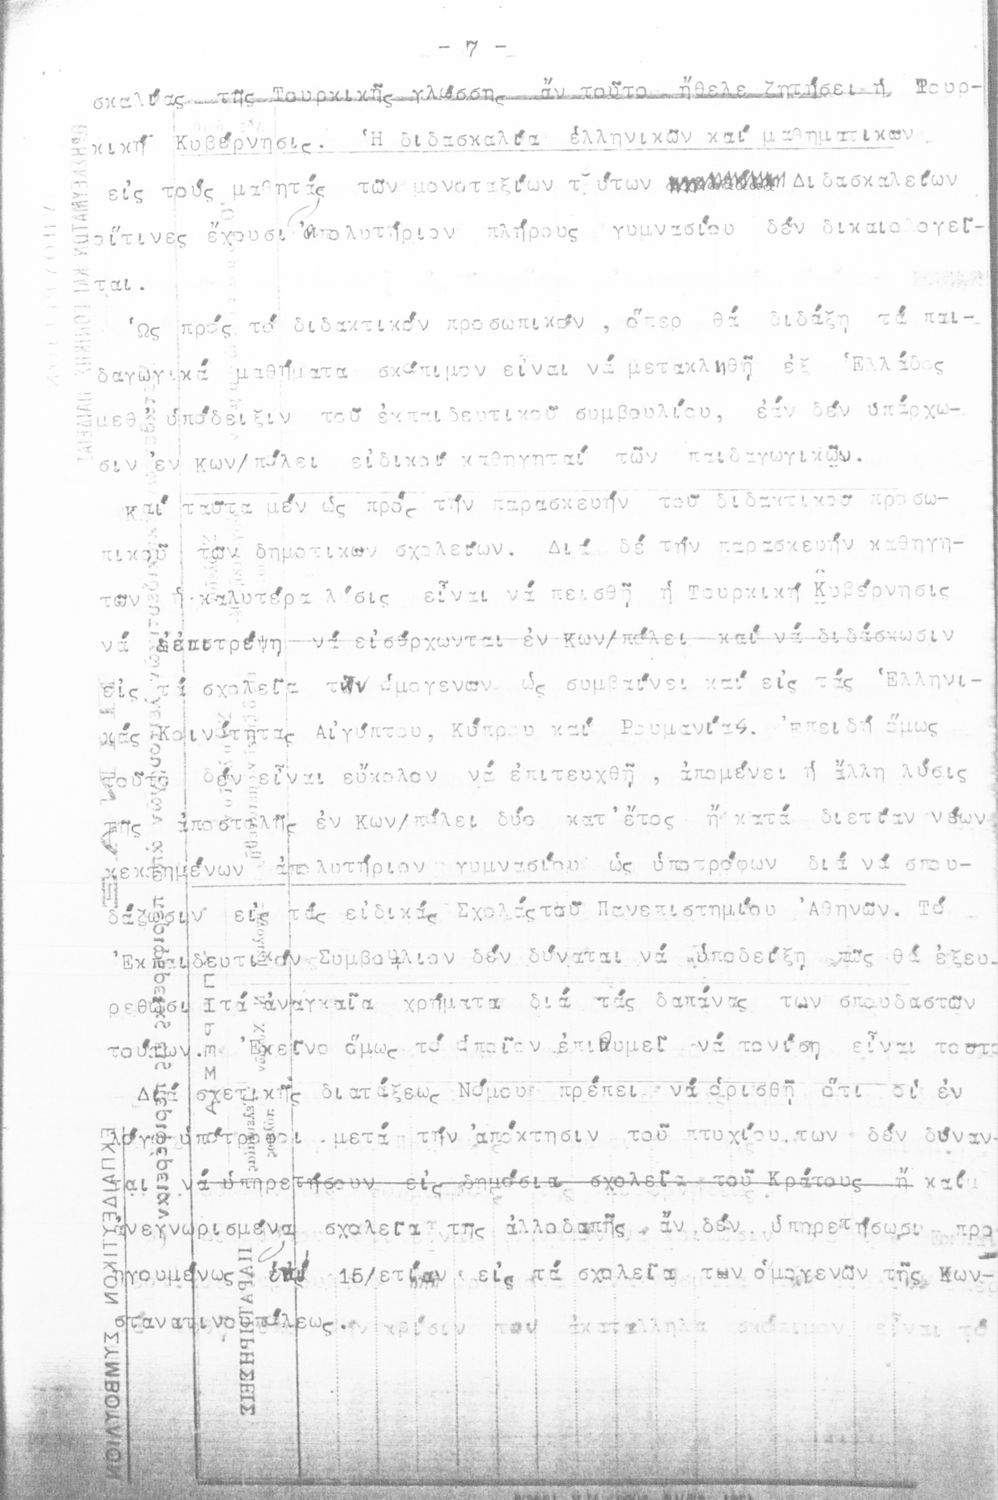 - 7 -
σκαλίας τῆς Τουρκικῆς γλώσσης ἄν τοῦτο ἤθελε ζητήσει ἡ Τουρ-
κική Κυβέρνησις. Ἡ διδασκαλία ἑλληνικῶν καί μαθηματικων
εἰς τούς μαθητάς τῶν μονοταξίων τοιύτων Διδασκαλείων
οἵτινες ἔχουσι ἀπολυτήριον πλήρους γυμνασίου δέν δικαιολογεῖ-
ται.
Ὡς πρός τό διδακτικόν προσωπικόν, ὅπερ θά διδάξη τά παι-
δαγωγικά μαθήματα σκόπιμον εἶναι νά μετακληθῆ ἐξ Ἑλλάδος
μεθ ὑπόδειξιν τοῦ ἐκπαιδευτικοῦ συμβουλίου, ἐάν δέν ὑπάρχω-
σιν ἐν Κων/πόλει εἰδικοί καθηγηταί τῶν παιδαγωγικῶν.
Καί ταῦτα μέν ὡς πρός τήν παρασκευήν τοῦ διδακτικοῦ προσω-
πικοῦ τῶν δημοτικων σχολείων. Διά δέ τήν παρασκευήν καθηγη-
των ἡ καλυτέρα λύσις εἶναι νά πεισθῆ ἡ Τουρκική Κυβέρνησις
νά ἐπιτρέψη νά εἰσέρχωνται ἐν Κων/πόλει καί νά διδάσκωσιν
εἰς τά σχολεῖα τῶν ὁμογενων ὡς συμβαίνει καί εἰς τάς Ἑλληνι-
κάς Κοινότητας Αἰγύπτου, Κύπρου καί Ρουμανίας. Ἐπειδή ὅμως
τοῦτο δέν εἶναι εὔκολον νά ἐπιτευχθῆ, ἀπομένει ἡ ἄλλη λύσις
τῆς ἀποστολῆς ἐν Κων/πόλει δύο κατ'ἔτος ἤ κατά διετίαν νέων
κεκτημένων ἀπολυτήριον γυμνασίου ὡς ὑποτρόφων διά νά σπου-
δάζωσιν εἰς τάς εἰδικάς Σχολάς τοῦ Πανεπιστημίου Ἀθηνῶν. Τό
Ἐκπαιδευτικόν Συμβούλιον δέν δύναται νά ὑποδείξη πῶς θά ἐξευ-
ρεθῶσι τά ἀναγκαῖα χρήματα διά τάς δαπάνας των σπουδαστῶν
τούτων. Ἐκεῖνο ὅμως τό ὁποῖον ἐπιθυμεῖ νά τονίση εἶναι τοῦτο
Διά σχετικῆς διατάξεως Νόμου πρέπει νά ὁρισθῆ ὅτι οἱ ἐν
λόγω ὑπότροφοι μετά τήν ἀπόκτησιν τοῦ πτυχίου των δέν δύναν-
ται νά ὑπηρετήσουν εἰς δημόσια σχολεῖα τοῦ Κράτους ἤ καί
ἀνεγνωρισμένα σχολεῖα τῆς ἀλλοδαπῆς ἄν δέν ὑπηρετήσωσι προ
ηγουμένως ἐπί 15/ετίαν εἰς τά σχολεῖα των ὁμογενῶν τῆς Κων-
σταντινουπόλεως.
ΕΚΠΑΙΔΕΥΤΙΚΟΝ ΣΥΜΒΟΥΛΙΟΝ
ΠΑΡΑΤΗΡΗΣΕΙΣ